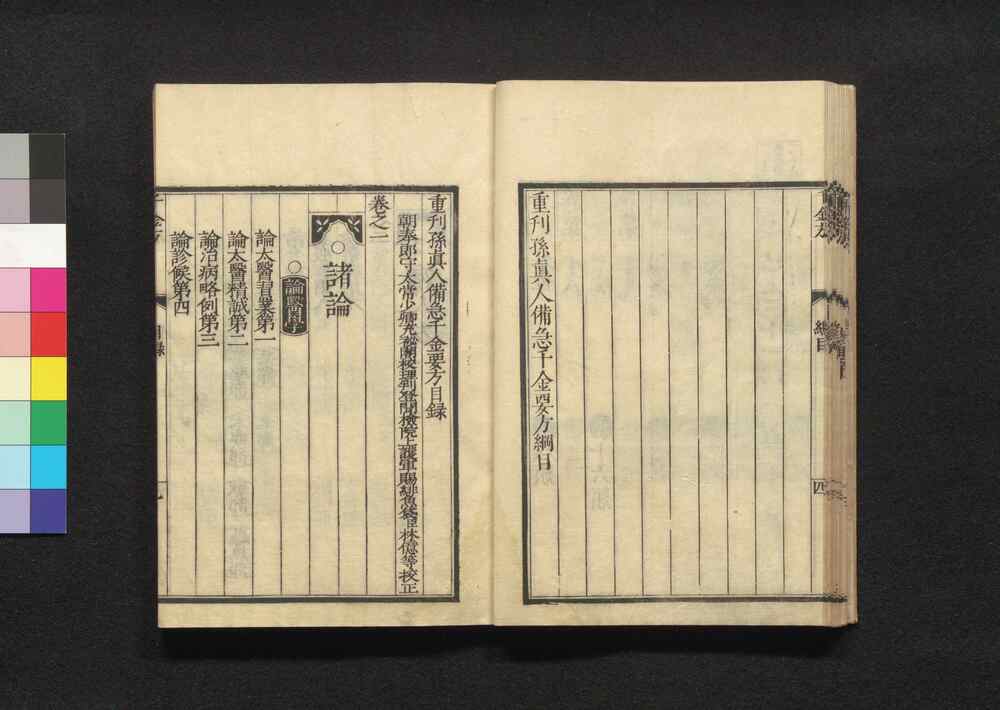 重刊孫真人備急千金要方綱目
綱目
四
重刊孫真人備急千金要方目録
朝奉郎守太常少卿充秘閣校理判登聞檢院上護軍賜緋魚袋臣林億等校正
卷之一
諸論
論醫科學
論太醫習業第一
論太醫精誠第二
論治病略例第三
論診候第四
千金方
目録